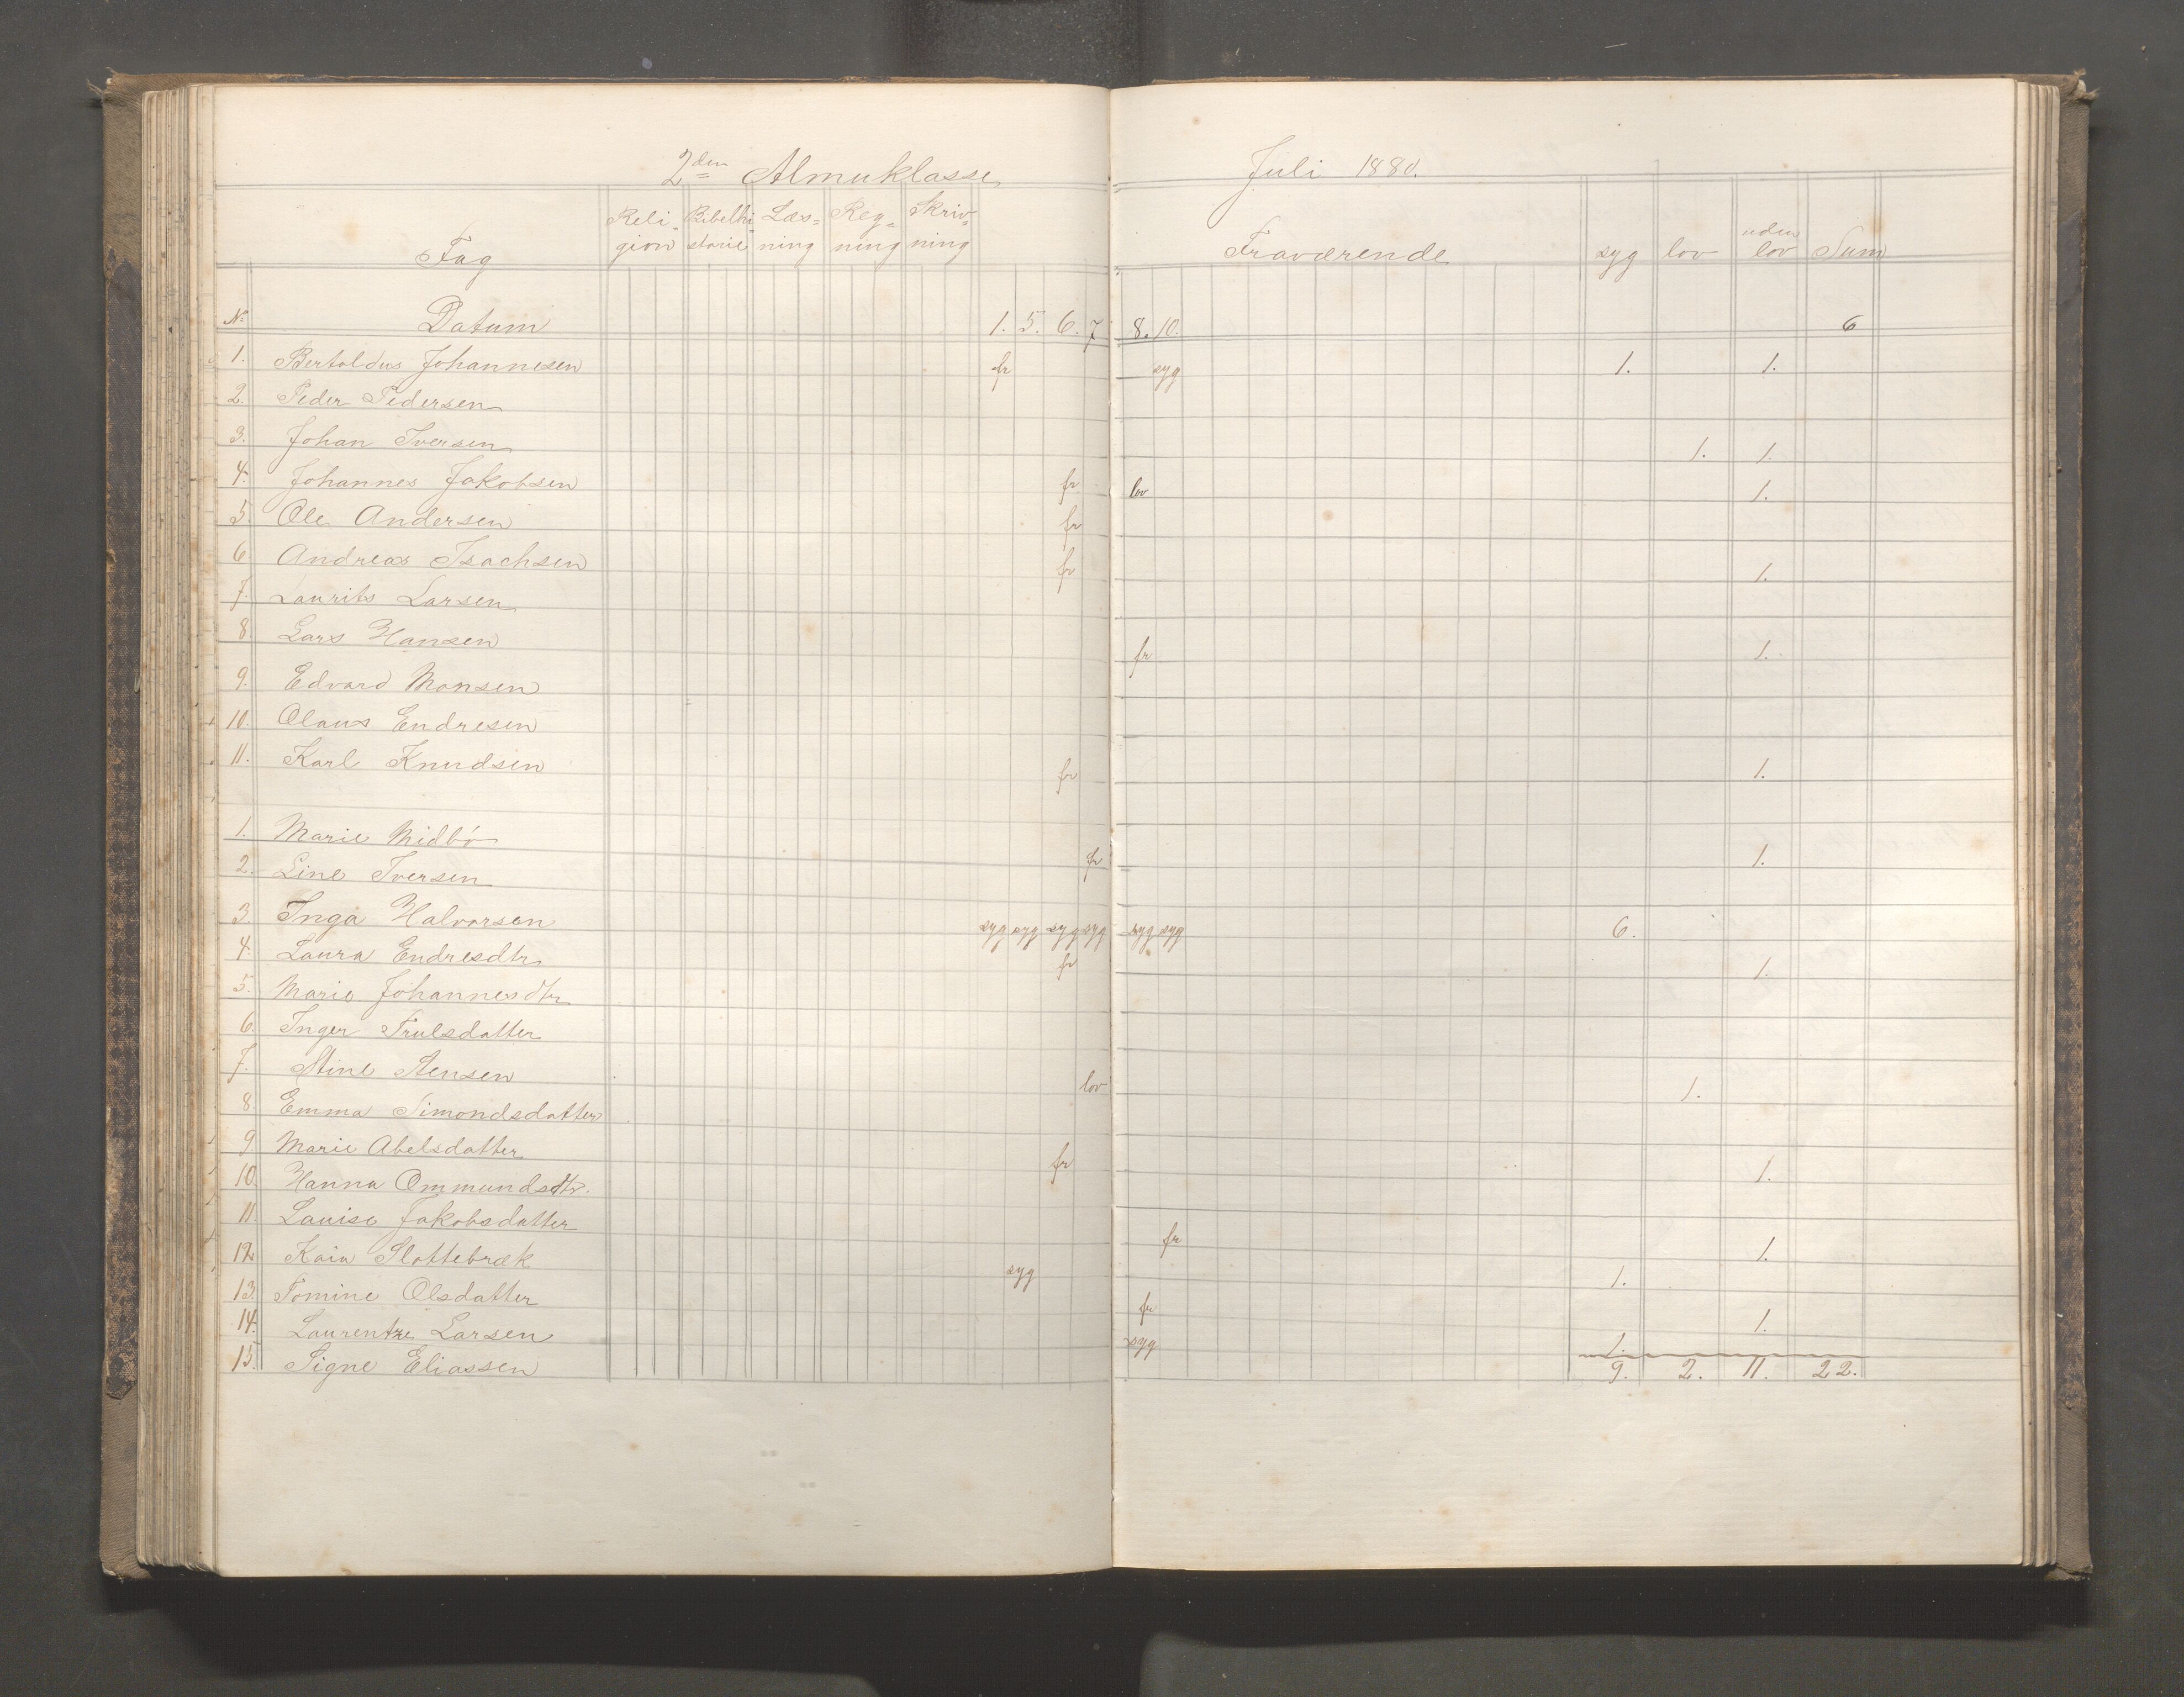 2den Almuklasse
Juli 1880.
Fag Religion Bibelhistorie Læsning Regning Skrivning Fraværende syg lov uden lov Sum
No Datum 1. 5. 6. 7 8. 10. 6
1. Bertoldus Johannesen fr syg 1. 1.
2. Peder Pedersen
3. Johan Iversen 1. 1.
4. Johannes Jakobsen fr lov 1.
5. Ole Andersen fr
6. Andreas Isachsen fr 1.
7. Laurits Larsen
8. Lars Hansen fr 1.
9. Edvard Monsen
10. Olaus Endresen
11. Karl Knudsen fr 1.
1. Marie Midbø
2. Line Iversen fr 1.
3. Inga Halvorsen syg syg syg syg syg syg 6.
4. Laura Endresdtr fr 1.
5. Marie Johannesdtr
6. Inger Trulsdatter
7. Stine Stensen lov 1.
8. Emma Simondsdatter
9 Marie Abelsdatter fr 1.
10. Hanna Ommundsdtr.
11. Louise Jakobsdatter fr 1.
12 Kaia Slottebræk syg 1.
13. Tomine Olsdatter fr 1.
14. Laurentze Larsen syg 1.
15. Signe Eliassen 9. 2. 11. 22.